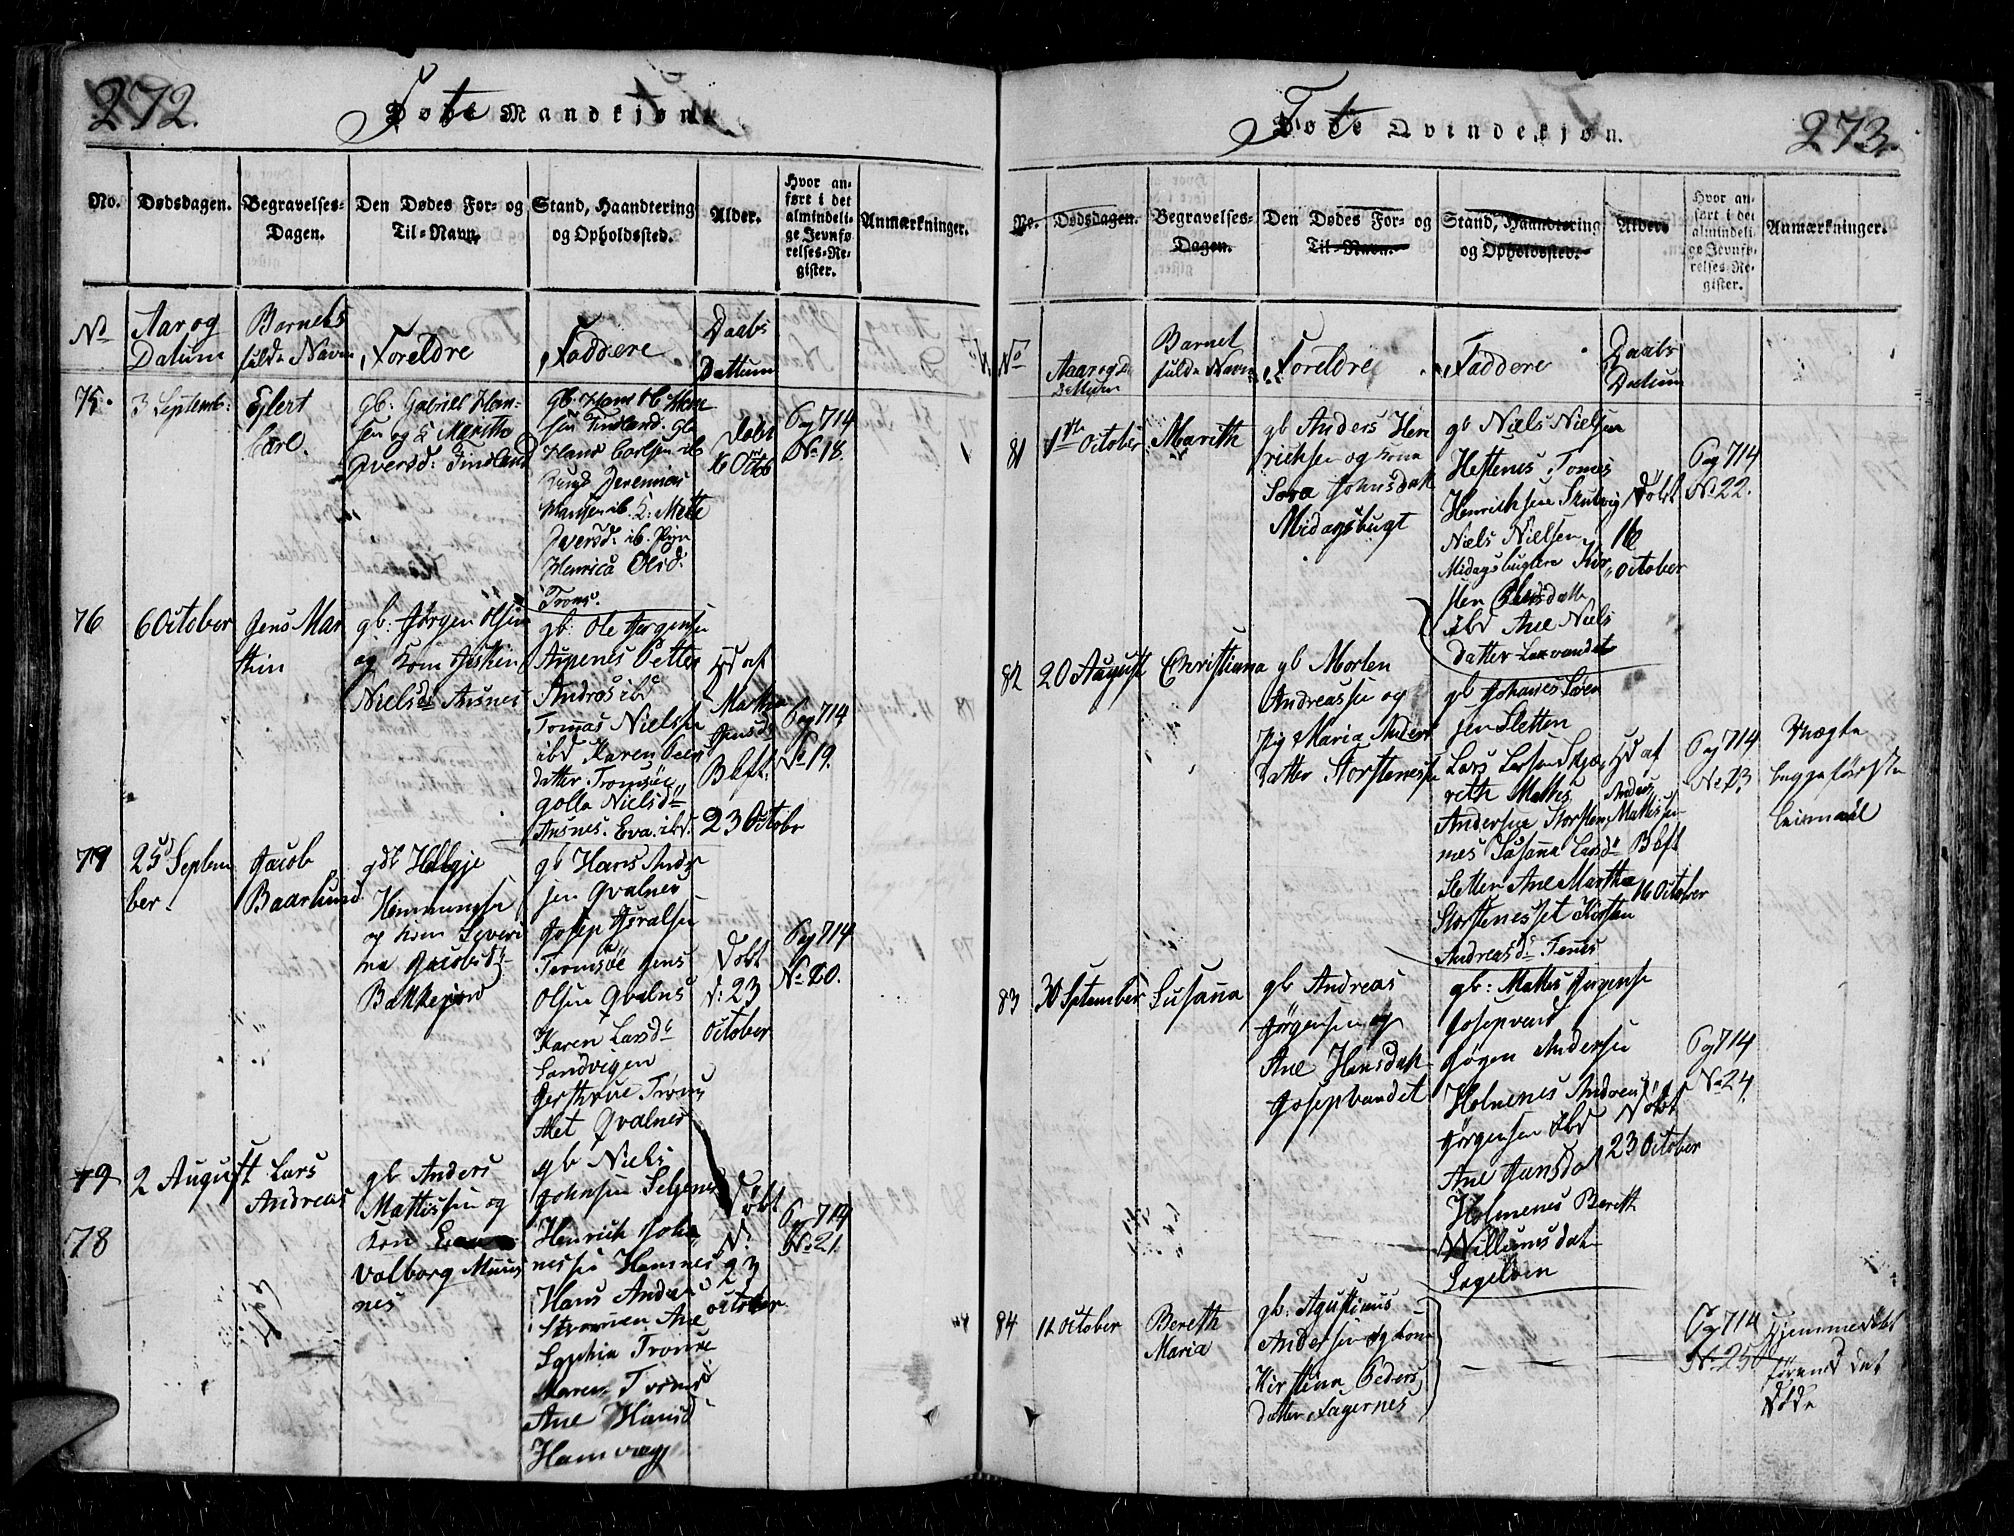 272.
Føte Mandkjøn.
No.
Dødsdagen.
Begravelses-
Dagen.
Den Dødes For- og
Til-Navn.
Stand, Haandtering
og Opholdssted.
Alder.
Hvor an-
ført i det
almindeli-
ge Jevnfø-
relses-Re-
gister.
Anmærkninger.
No
Aar og
Datum
Barnets
fulde Navn
Foreldre
Faddere
Daabs
Dattum
75.
3 Septemb:
Ejlert
Carl.
gb: Gabriel Han-
sen og K Marith
Iversd: Tindland
gb. Hans
sen Tindland. gb
Hans Carlsen ib
Jeremias
Hansen ib. K: Mette
Iversd: ib. Pign
Henrica Olsd.
Troms.
Døbt
16 Octb
Pag 714
No 18.
76
6 October
Jens Mar
thin
gb: Jørgen Olsen
og kone
Nielsd Ansnes
gb: Ole Jørgensen
Aspenes Petter
Andras ibd
Tomas Nielsen
ibd Karen Peers
datter Tromsöe
golla Nielsdr
Ansnes. Eva. ibd.
Hd af
Jensd
Bkft.
23 Octobr
Pag 714
No 19.
77
25 Septem
ber.
Jacob
Baarlund
gdb Helgje
Hemmingsen
og kone Severi
na Jacobsdr
Bakkejord
gb Hans Ander
sen Qvalnes
Josep Israelsen
Tromsöe Jens
Olsen Qvalns
Karen Larsdr
Sandvigen
Gerthrue Troms
Alet Qvalnes
Døbt
d: 23
October
Pag 714
No 20.
79
78
2 August
Lars
Andreas
gb Anders
Mattissen og
Kone
Valborg
nes
gb Niels
Johnsen Selgenes
Henrich Joha
nessen Hamnes
Hans Anders
Ane
Sophia Tromsøe
Maren Troms
Ane Hansd
Hamvaag
Døbt
d:
23
October
Pag 714
No 21.
273.
Føte Qvindekjøn.
No.
Dødsdagen.
Begravelses-
Dagen.
Den Dødes For- og
Til-Navn.
Stand, Haandtering
og Opholdssted.
Alder.
Hvor an-
ført i det
almindeli-
ge Jevnfø-
relses-Re-
gister.
Anmærkninger.
No
Aar og
Datum
Barnet
fulde Navn
Foreldre
Faddere
Daabs
Datum
81
1ste October
Marith
gb Anders Hen
richsen og kone
Sara Johnsdatt
Midagsbugt
gb Niels Nielsen
Hestenes Tomes
Henrichsen Skulvig
Niels Nielsen
Midagsbugten Kir
sten Olesdatte
ibd Ane Niels
datter Laxvandet
Døbt
16
October
Pag 714
No 22.
82
20 August
Christiana
gb Morten
Andreassen og
Pig Maria Anders
datter Storstenesse
gb Johanes Søren
sen Sletten
Lars Larsen Skjæ
reth Mattis
Andersen Storsten
nes Susanna Larsdr
Sletten Ane Martha
Storstenesset Kirsten
Andreasdr Tennes
Hd af
Anders
Mathissen
Bkft
16 October
Pag 714
No 23
Uægte
begge første
leiermaal
83
30 September
Susana
gb Andreas
Jørgensen og
Ane Hansdatt
Josepvandet
gb: Mattis Jørgensen
Josepvand
Jøgen Andersen
Holmenes Andreas
Jørgensen ibd
Ane Jensdat
Holmenes Bereth
Willumsdat
Sagelven
Døbt
23 October
Pag 714
No 24.
84
11 October
Bereth
Maria
gb. Agustinus
Andersen og kone
Kirstina Peders
datter Fagernes
Pag 714
No 25
Hjemmedøbt
førend det
døde